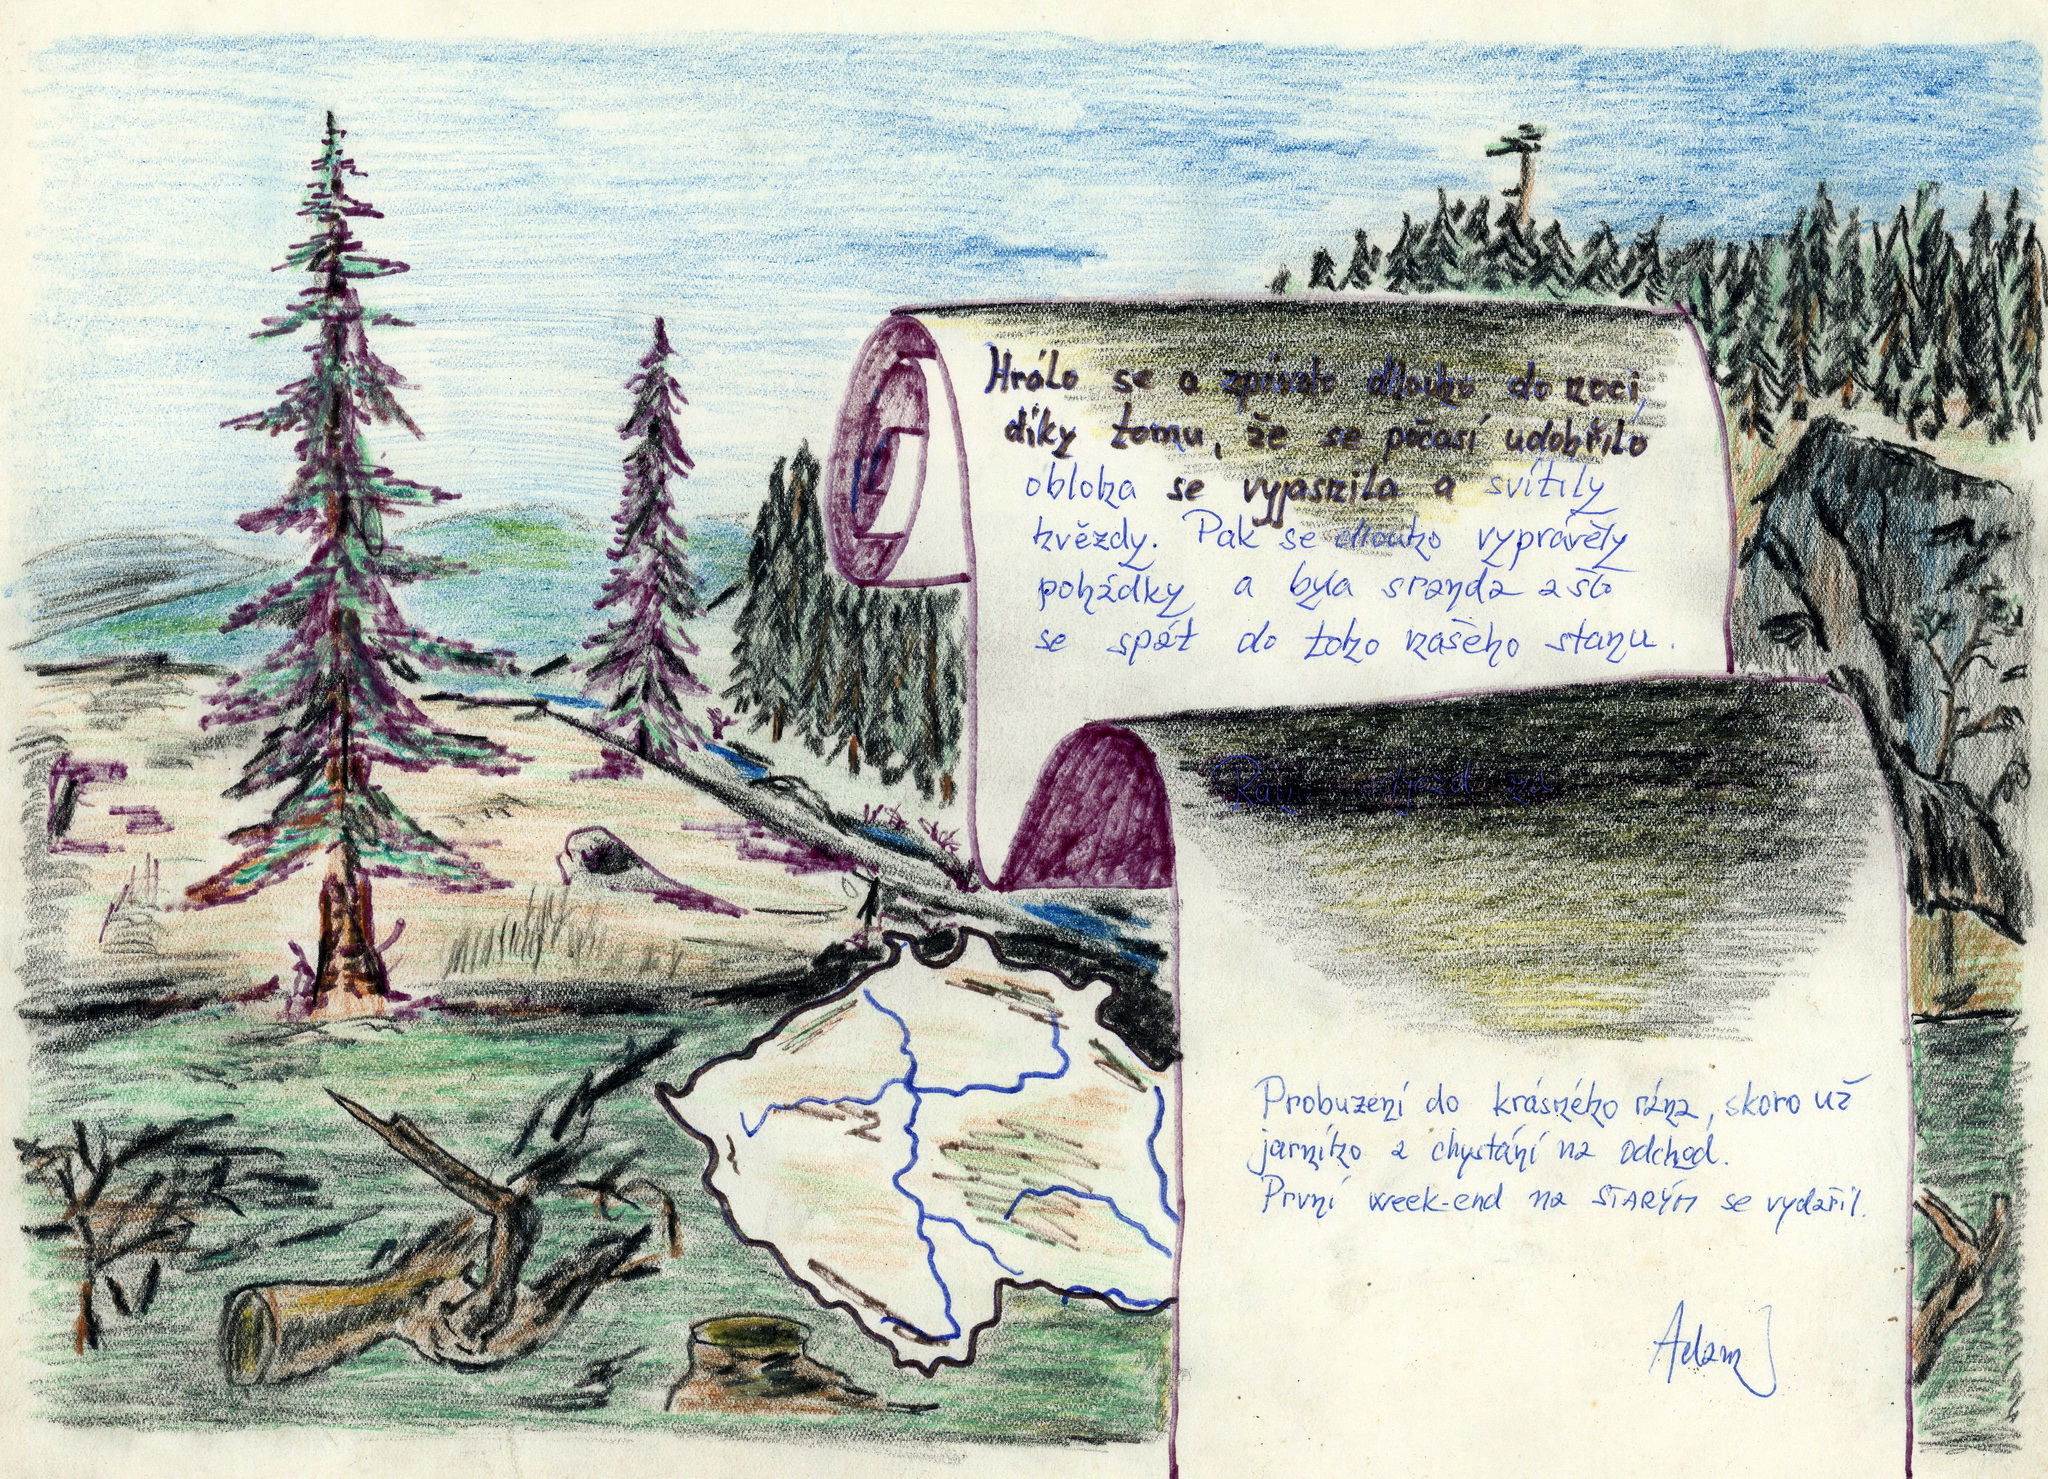 Hrálo se a zpívalo dlouho do noci
díky tomu, že se počasí udobřilo
obloha se vyjasnila a svítily
hvězdy. Pak se dlouho vyprávěly
pohádky a byla sranda a šlo
se spát do toho našeho stanu.
odjezd za
Probuzení do krásného rána, skoro už
jarního a chystání na odchod.
První week-end na STARÝM se vydařil.
Adam